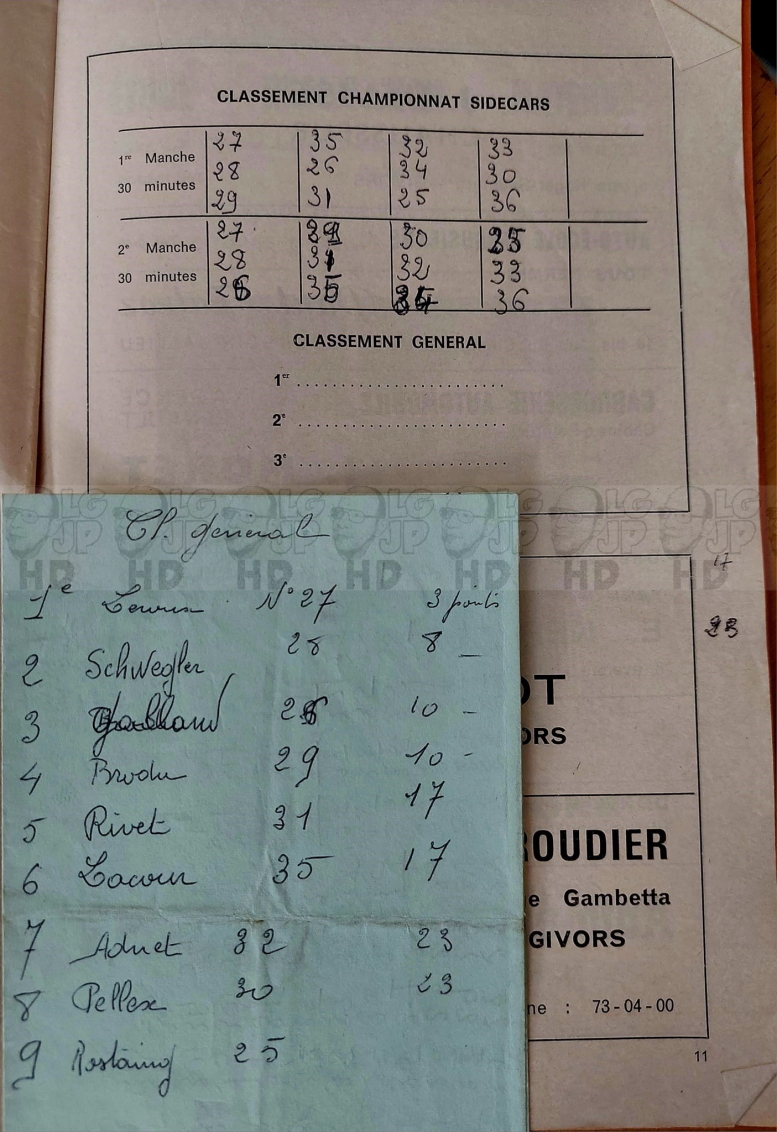 CLASSEMENT CHAMPIONNAT SIDECARS
1re Manche 30 minutes
27 35 32 33
28 26 34 30
29 31 25 36
2e Manche 30 minutes
27 29 30 25
28 31 32 33
26 35 34 36
CLASSEMENT GENERAL
1er ........................
2e ........................
3e ........................
LG JP HD LG JP HD LG JP HD LG JP HD LG JP HD LG JP HD LG JP HD
Cl. général
1e N° 27 3 points
2 Schwegler 28 8 –
3 26 10 –
4 Brodu 29 10 –
5 Rivet 31 17
6 Lacour 35 17
7 Adnet 32 23
8 Pellex 30 23
9 Rostaing 25
17
23
OT
ORS
ROUDIER
e Gambetta
GIVORS
ne : 73-04-00
11